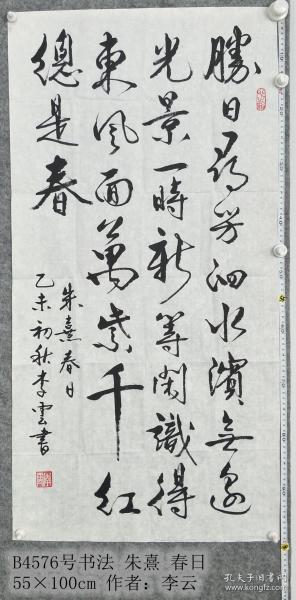 勝日尋芳泗水濱無邊
光景一時新等閑識得
東風面萬紫千紅
總是春
朱熹春日
乙未初秋李雲書
B4576号书法 朱熹 春日
55×100cm 作者：李云
孔夫子旧书网